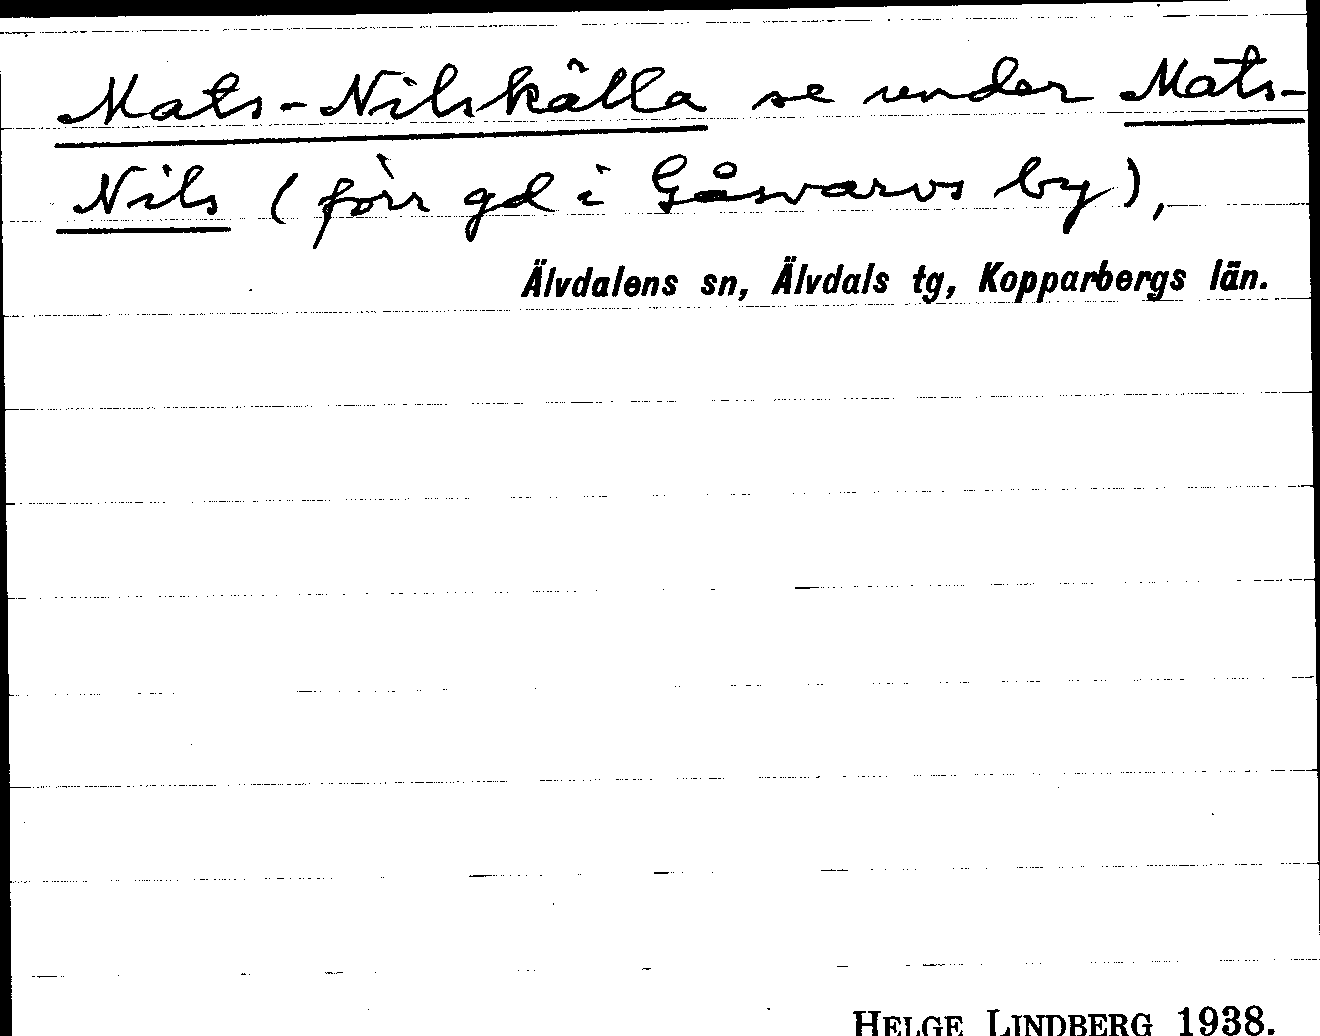 Mats-Nilskälla se under Mats-
Nils (förr gd i Gåsvarvs by),
Älvdalens sn, Älvdals tg, Kopparbergs län.
HELGE LINDBERG 1938.